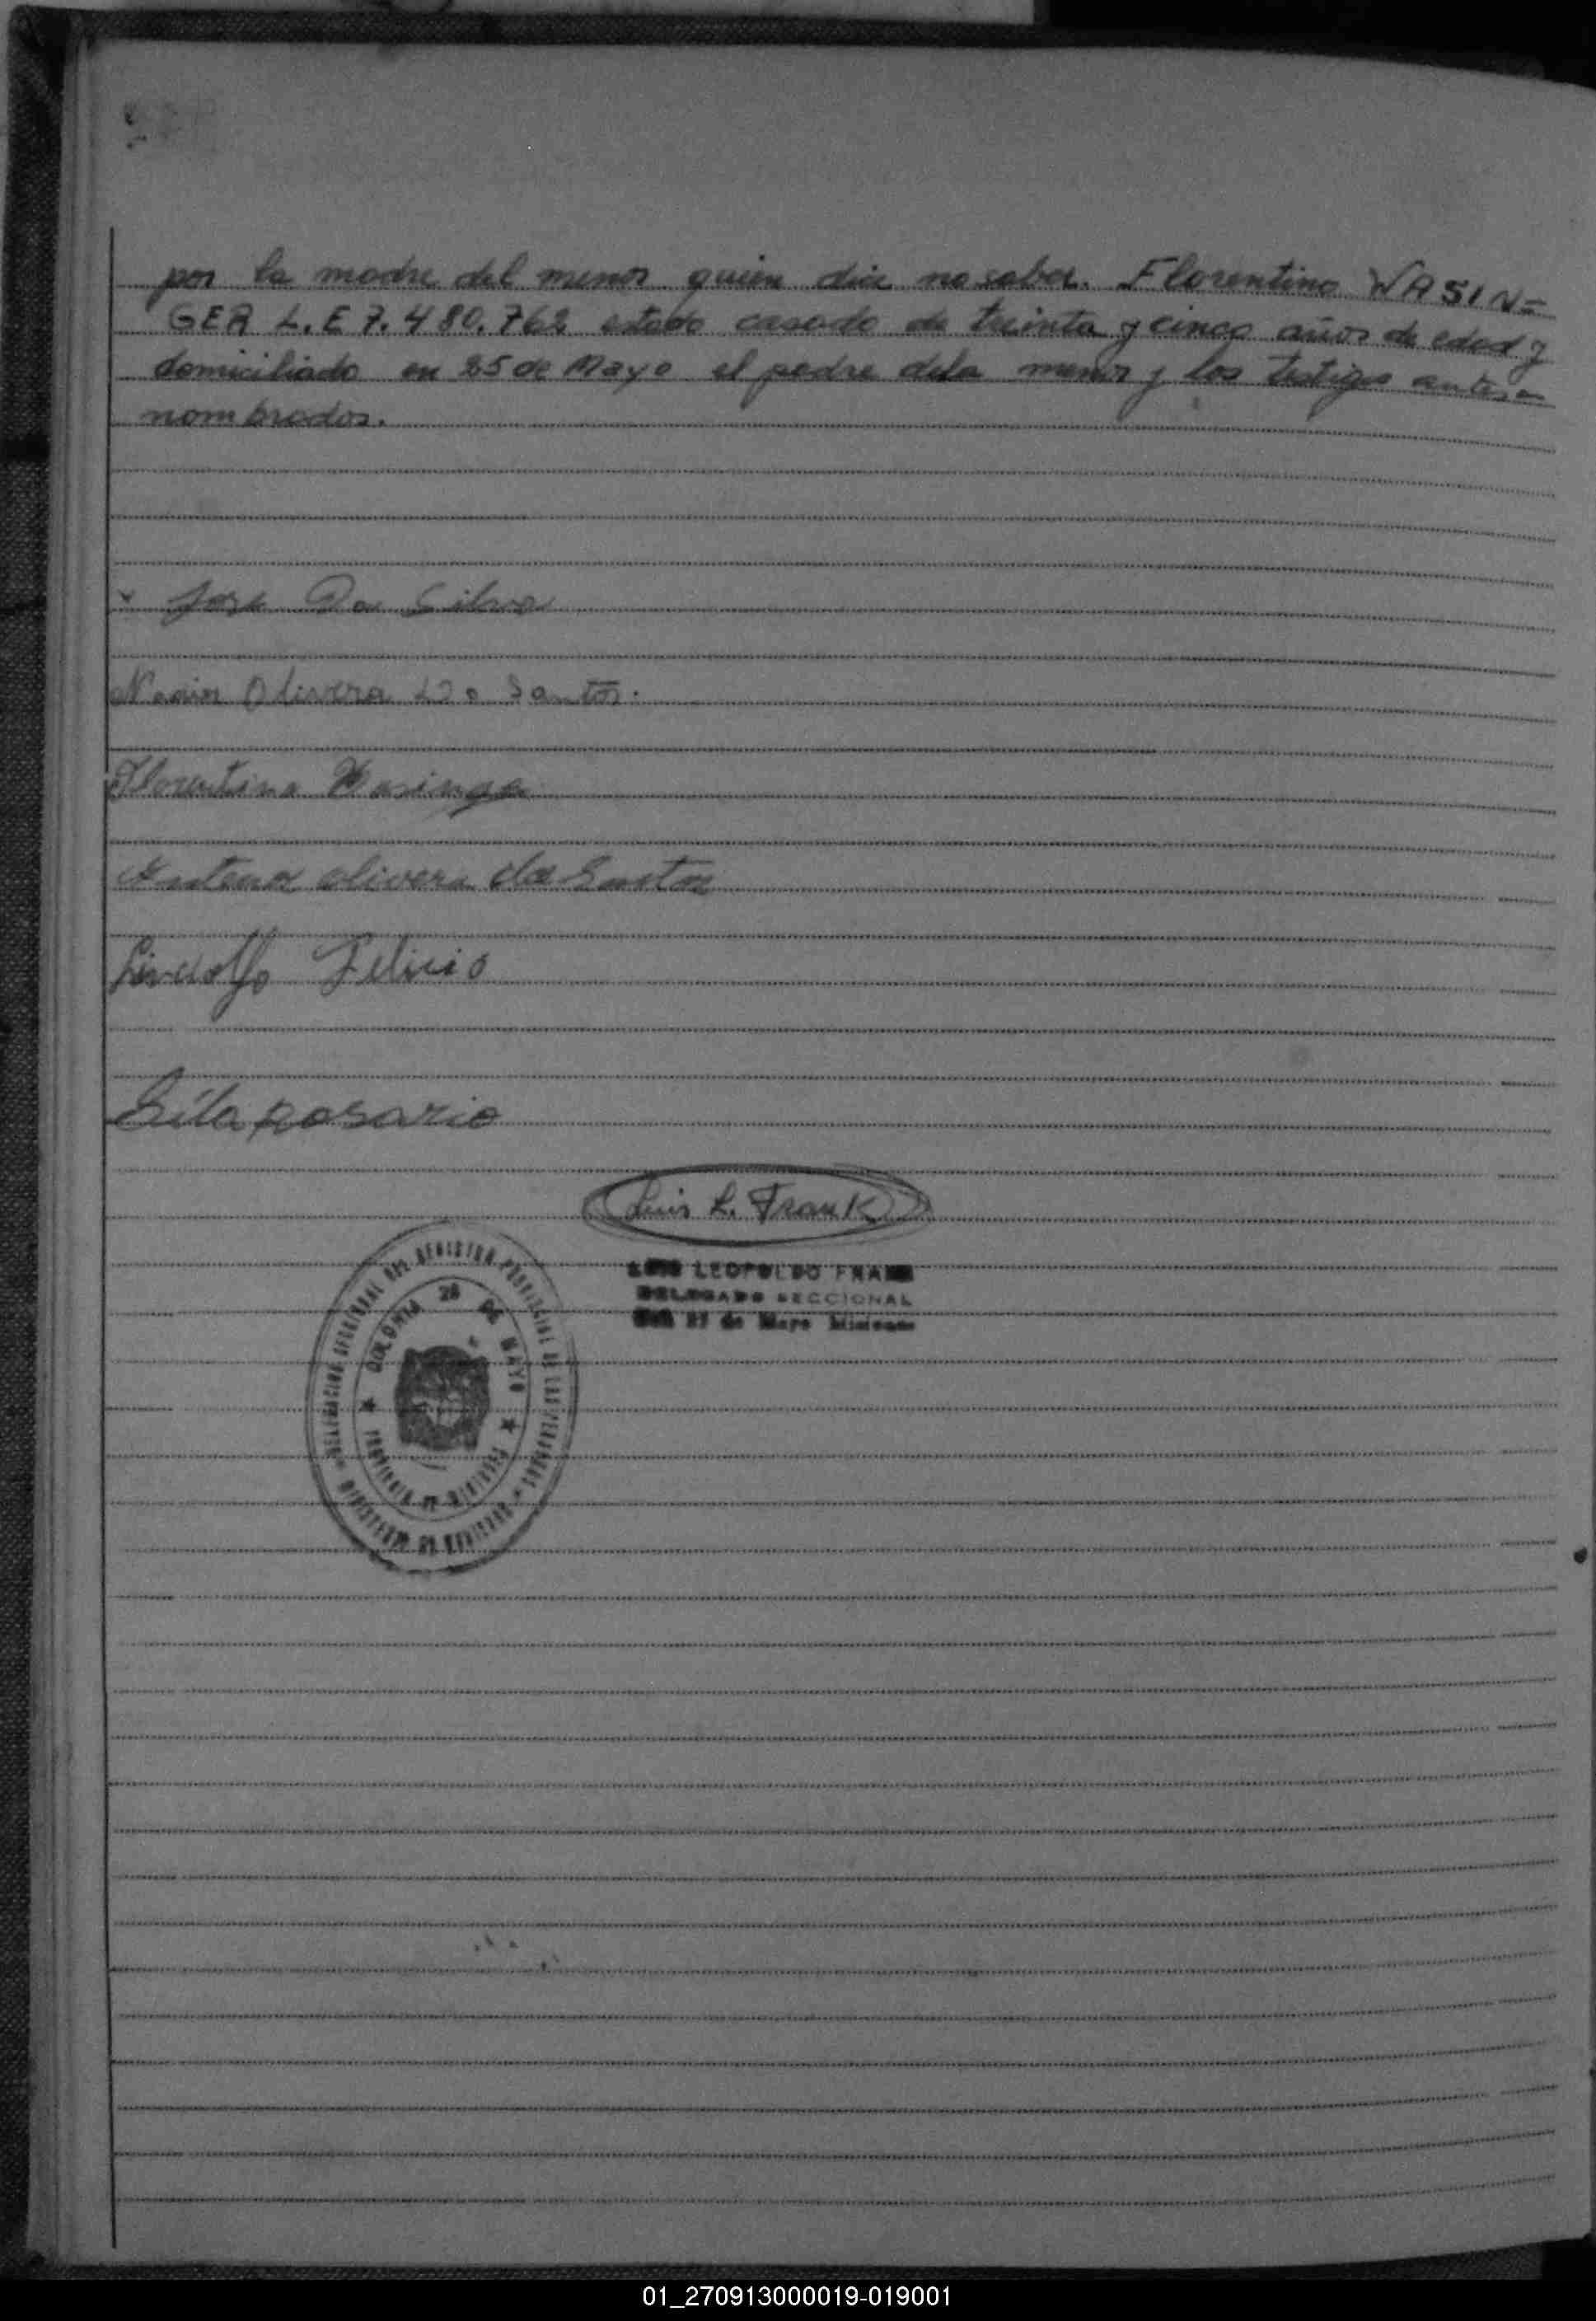 por la madre del menor quien dice no saber. Florentino WASIN=
GER L. E 7.480.762 estado casado de treinta y cinco años de edad y
domiciliado en 25 de Mayo el padre dela menor y los testigos antes
nombrados.
Jose Da Silva
Olivera Do Santos.
Florentino Wasinger
Antenor olivera dos Santos
Lindolfo Felicio
rosario
Luis L. Frank
LUIS LEOPOLDO FRANK
DELEGADO SECCIONAL
25 de Mayo Misiones
DELEGACION SECCIONAL DEL REGISTRO PROVINCIAL DE LAS PERSONAS
COLONIA 25 DE MAYO
PROVINCIA DE MISIONES
01_270913000019-019001